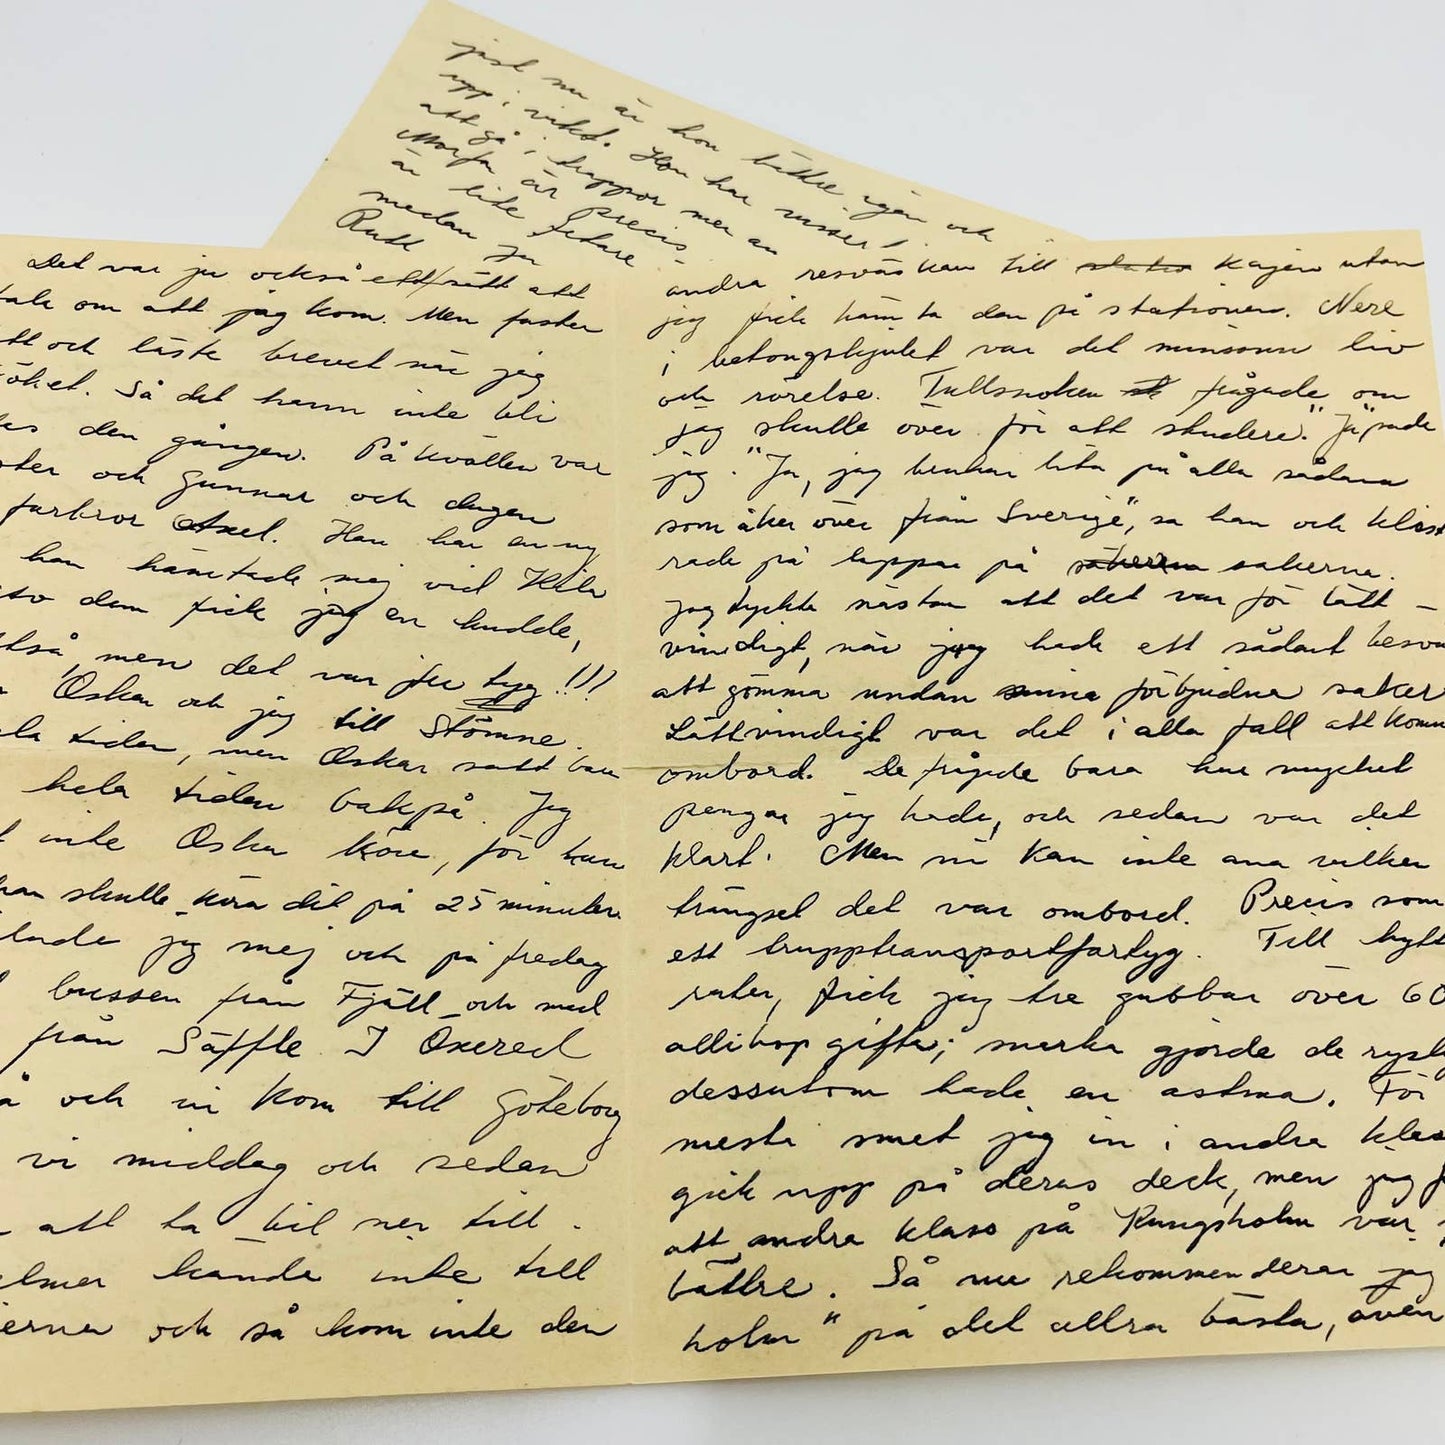 just nu är hon bättre igen och
upp i vikt. Hon har svårt
att gå i trappor men
Morfar är precis
är lite fetare
medan
Ruth
Det var ju också ett sätt att
tala om att jag kom. Men faster
och läste brevet när jag
Så det hann inte bli
den gången. På kvällen var
och Gunnar och dagen
farbror Axel. Han har en ny
han hämtade mej vid Kila
dem fick jag en kudde,
men det var ju tyg!!!
Oskar och jag till Stömne.
tiden, men Oskar satt bara
hela tiden bakpå. Jag
inte Oskar köra, för han
han skulle köra dit på 25 minuter
jag mej och på fredag
bussen från Fjäll och med
från Säffle. I Oxered
och vi kom till Göteborg
vi middag och sedan
att ta bil ner till
kunde inte till
och så kom inte den
andra resväskan till kajen utan
jag fick hämta den på stationen. Nere
i betongskjulet var det minsann liv
och rörelse. Tullsnoken frågade om
jag skulle över för att studera. "Ja",
jag. "Ja, jag brukar lita på alla sådana
som åker över från Sverige", sa han och klist
rade på lappar på sakerna.
Jag tyckte nästan att det var för lätt –
vindigt, när jag hade ett sådant besvär
att gömma undan förbjudna saker
Lättvindigt var det i alla fall att komma
ombord. De frågade bara hur mycket
pengar jag hade, och sedan var det
klart. Men ni kan inte ana vilken
trängsel det var ombord. Precis som
ett trupptransportfartyg. Till hytt
rater, fick jag tre gubbar över 60
allihop gifta; snarka gjorde de rysl
dessutom hade en astma. För
mesta smet jag in i andra klass
gick upp på deras deck, men jag
att andra klass på Kungsholm var
bättre. Så nu rekommenderar jag
holm" på det allra bästa, även